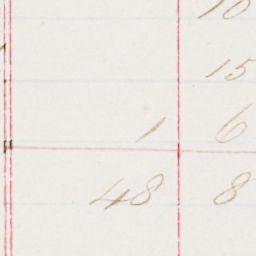 10
15
1 6
48 8